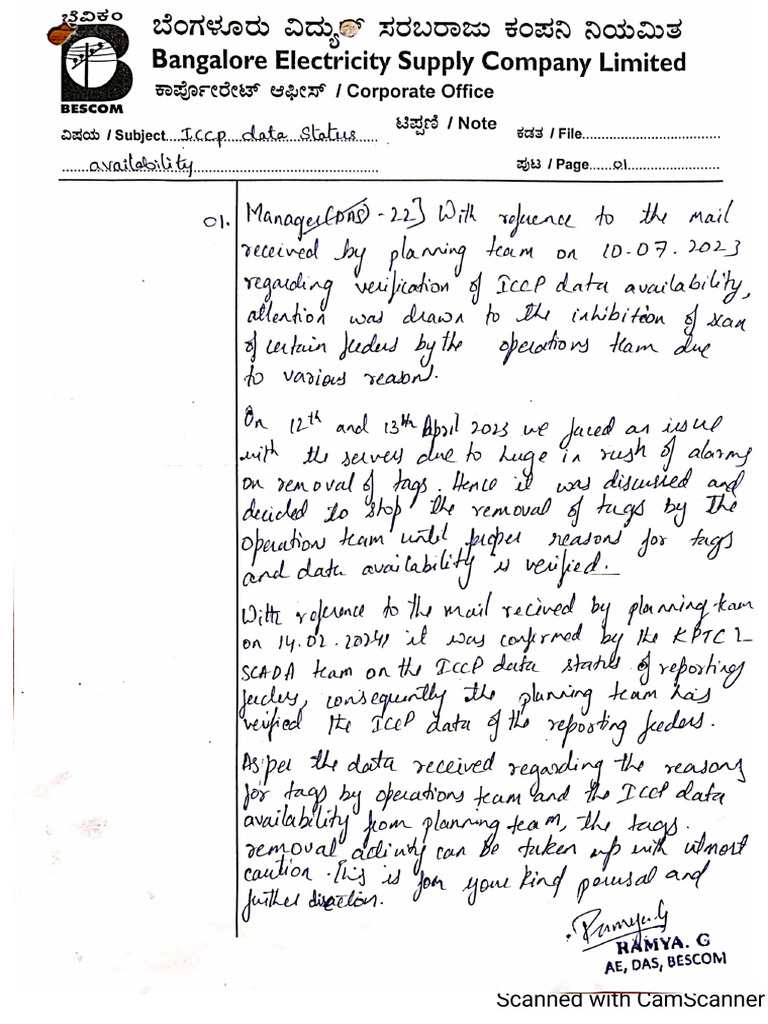 ಬೆವಿಕಂ
BESCOM
ಬೆಂಗಳೂರು ವಿದ್ಯುತ್ ಸರಬರಾಜು ಕಂಪನಿ ನಿಯಮಿತ
Bangalore Electricity Supply Company Limited
ಕಾರ್ಪೋರೇಟ್ ಆಫೀಸ್ / Corporate Office
ಟಿಪ್ಪಣಿ / Note
ವಿಷಯ / Subject ICCP data Status
availability
ಕಡತ / File
ಪುಟ / Page 01
01. Manager(DAS) - 22] With refuence to the mail
received by planning team on 10.07.2023
regarding verification of ICCP data availability,
attention was drawn to the inhibition of scan
of certain feeders by the operations team due
to various reason.
On 12th and 13th April 2023 we faced an issue
with the servers due to huge in rush of alarms
on removal of tags. Hence it was discussed and
decided to stop the removal of tags by the
operation team until proper reasons for tags
and data availability is verified.
With reference to the mail recived by planning team
on 14.02.2024, it was confirmed by the KPTCL
SCADA team on the ICCP data status of reporting
feeders, consequently the planning team has
verified the ICCP data of the reporting feeders.
As per the data received regarding the reasons
for tags by operations team and the ICCP data
availability from planning team, the tags
removal activity can be taken up with utmost
caution. This is for your kind perusal and
further direction.
Ramya.G
RAMYA. G
AE, DAS, BESCOM
Scanned with CamScanner